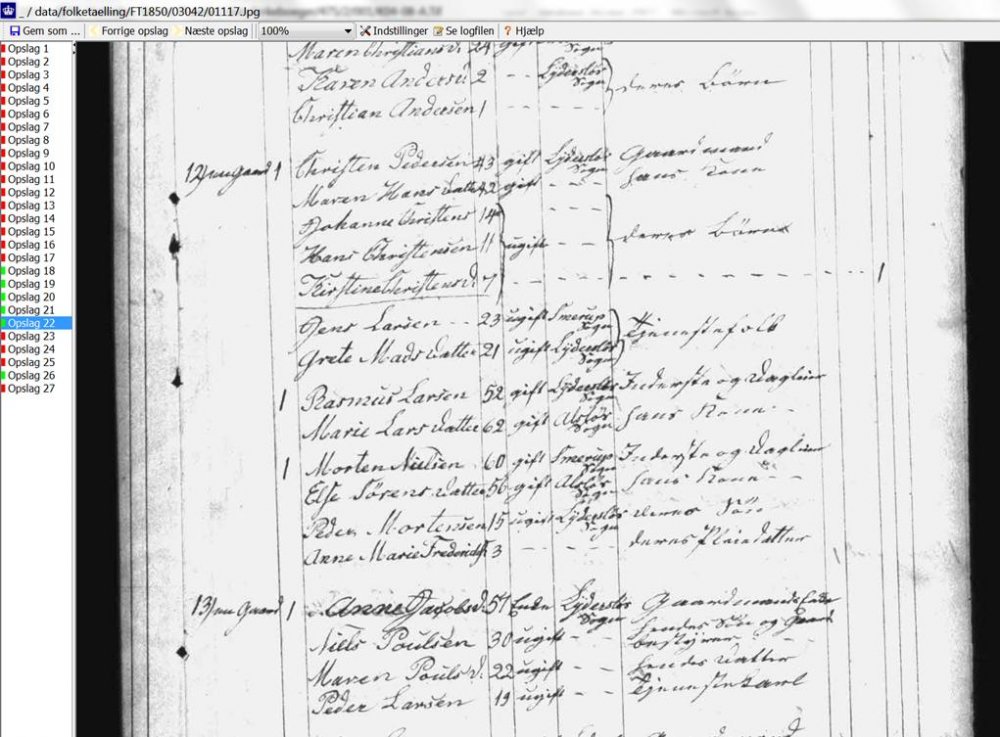 _ / data/folketaelling/FT1850/03042/01117.Jpg
Gem som ... Forrige opslag Næste opslag 100% Indstillinger Se logfilen ? Hjælp
Opslag 1
Opslag 2
Opslag 3
Opslag 4
Opslag 5
Opslag 6
Opslag 7
Opslag 8
Opslag 9
Opslag 10
Opslag 11
Opslag 12
Opslag 13
Opslag 14
Opslag 15
Opslag 16
Opslag 17
Opslag 18
Opslag 19
Opslag 20
Opslag 21
Opslag 22
Opslag 23
Opslag 24
Opslag 25
Opslag 26
Opslag 27
Maren Christians D. 24
Karen Andersd. 2 - - Lyderslöv Sogn deres Börn
Christian Andersen 1 - - - -
12) en gaard 1 Christen Pedersen 43 gift Lyderslöv Sogn Gaardmand
Maren Hans datter 42 gift - - - hans Kone
Johanne Christens 14 - - -
Hans Christensen 11 ugift - - deres Börn
Kirstine Christensd. 7 - - - - 1
Jens Larsen - - 23 ugift Smerup Sogn Tjenestefolk
Grete Mads datter 21 ugift Lyderslöv Sogn
1 Rasmus Larsen 52 gift Lyderslöv Sogn Inderste og Dagleier
Marie Lars datter 62 gift Alslöv Sogn hans Kone - -
1 Morten Nielsen 60 gift Smerup Sogn Inderste og Dagleier
Else Sörens datter 56 gift Alslöv Sogn hans Kone - -
Peder Mortensen 15 ugift Lyderslöv Sogn deres Sön
Anne Marie Frederiksd. 3 - - - - deres Pleiedatter
13) en Gaard 1 Anne Jacobsd. 57 Enke Lyderslöv Sogn Gaardmands Enke
Niels Poulsen 30 ugift - - hendes Sön og Gaard bestyrer
Maren Pouls d. 22 ugift - - hendes datter
Peder Larsen 19 ugift - - Tjenestekarl